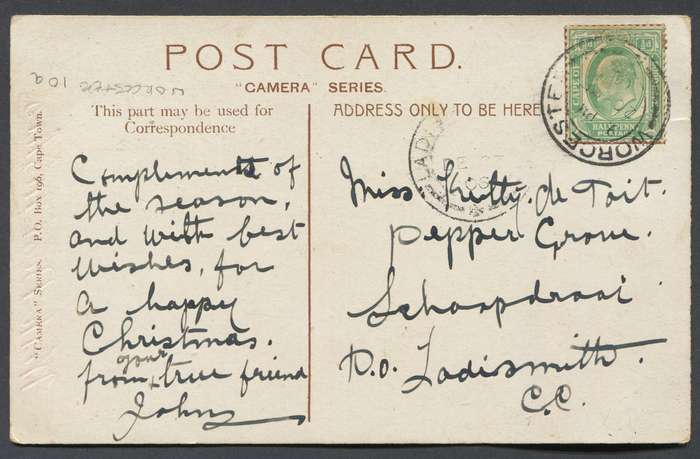 POST CARD.
"CAMERA" SERIES.
WORCESTER 10a
This part may be used for
Correspondence
ADDRESS ONLY TO BE HERE
"CAMERA" SERIES. P.O. Box 196, Cape Town.
HALF PENNY
POSTAGE
WORCESTER
LADI
Compliments of
the season,
and with best
wishes, for
a happy
Christmas.
from your true friend
John
Miss Kitty. de Toit.
Pepper Grove.
Schoopdraai
P.O. Ladismith.
C.C.